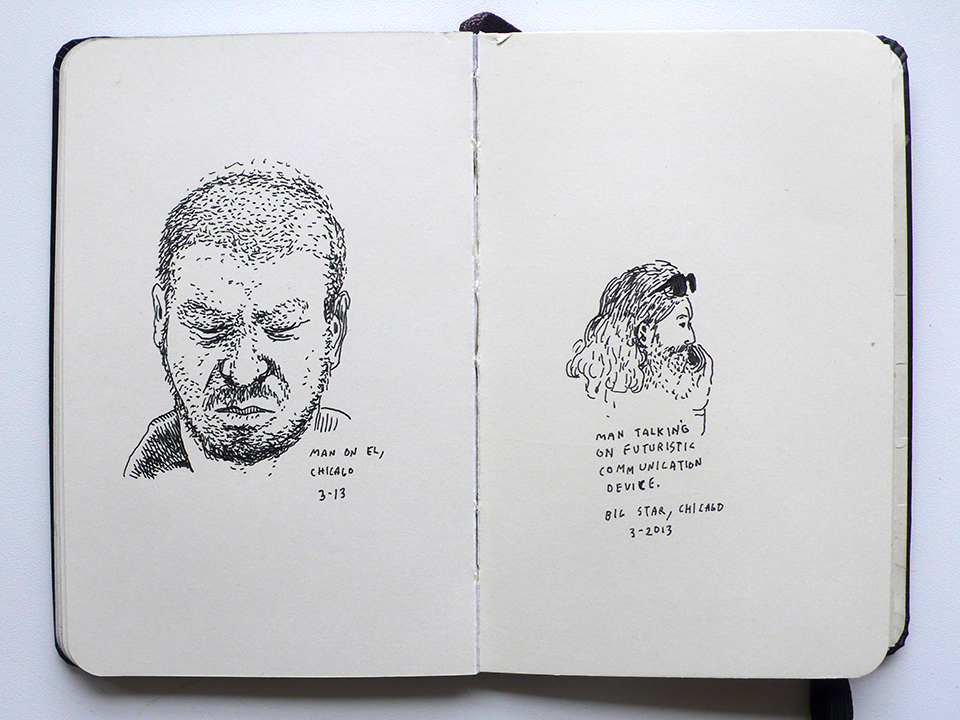 MAN ON EL,
CHICAGO
3-13
MAN TALKING
ON FUTURISTIC
COMMUNICATION
DEVICE.
BIG STAR, CHICAGO
3-2013